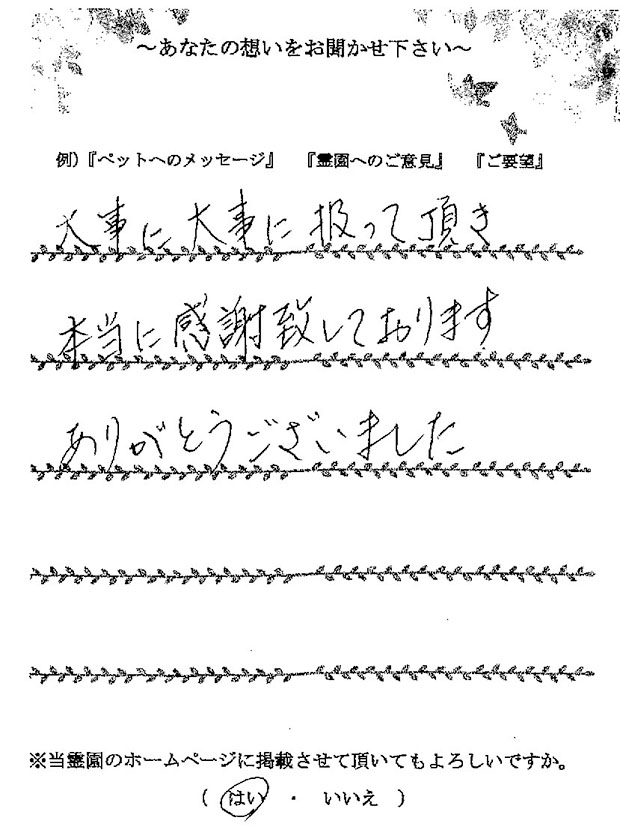 ～あなたの想いをお聞かせ下さい～
例）『ペットへのメッセージ』 『霊園へのご意見』 『ご要望』
大事に大事に扱って頂き
本当に感謝致しております
ありがとうございました
※当霊園のホームページに掲載させて頂いてもよろしいですか。
（ はい ・ いいえ ）